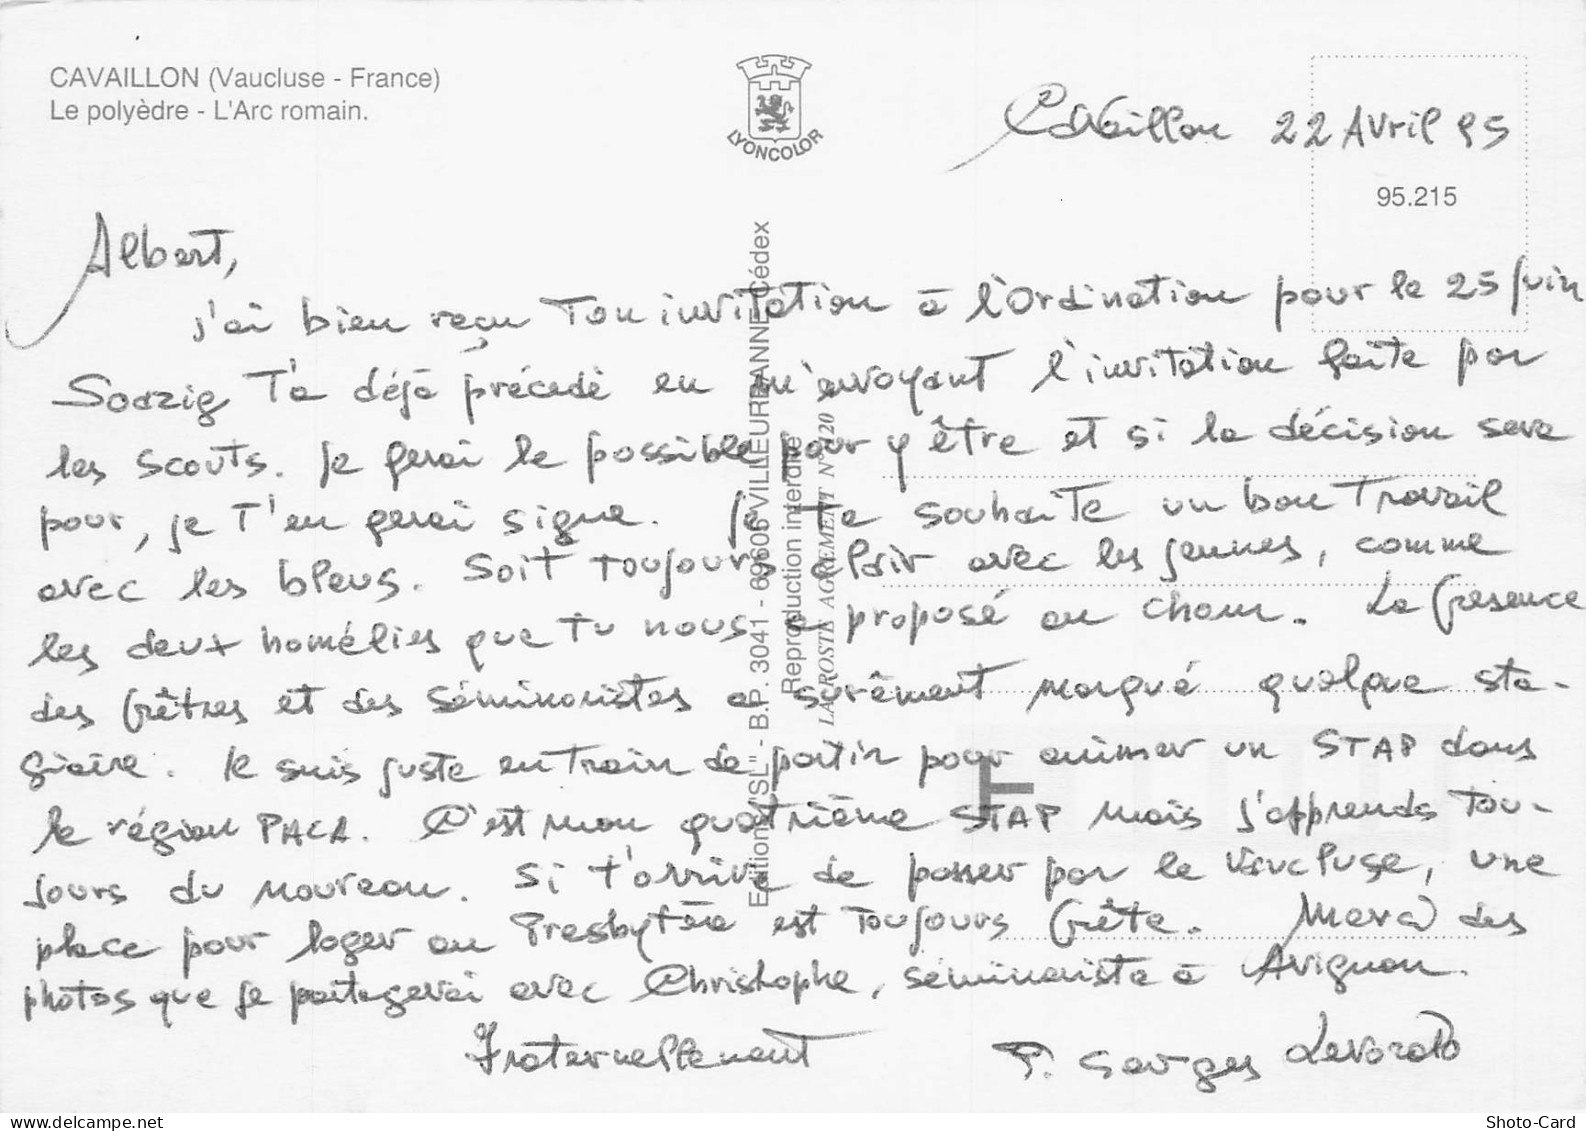 CAVAILLON (Vaucluse - France)
Le polyèdre - L'Arc romain.
LYONCOLOR
Cavaillon 22 Avril 95
95.215
Albert,
j'ai bien reçu Ton invitation à l'Ordination pour le 25 Juin
T'a déjà précédé en m'envoyant l'invitation faite par
les scouts. Je ferai le possible pour y être et si la décision sera
pour, je T'en ferai signe. Je Te souhaite un bon Travail
avec les bleus. Soit toujours clair avec les jeunes, comme
les deux homélies que Tu nous a proposé au Cham. La présence
des Prêtres et des séminaristes a sûrêment marqué quelque sta-
giaire. Je suis juste en train de partir pour animer un STAP dans
la région PACA. C'est mon quatrième STAP mais j'apprends Tou-
jours du nouveau. Si t'arrive de passer par le Vaucluse, une
place pour loger au Presbytère est Toujours Prête. Merci des
photos que je partagerai avec Christophe, séminariste à Avignon.
Fraternellement P. Georges Levorato
Editions "SL" - B.P. 3041 - 69605 VILLEURBANNE Cédex
Reproduction interdite
LA POSTE AGREMENT N°
Shoto-Card